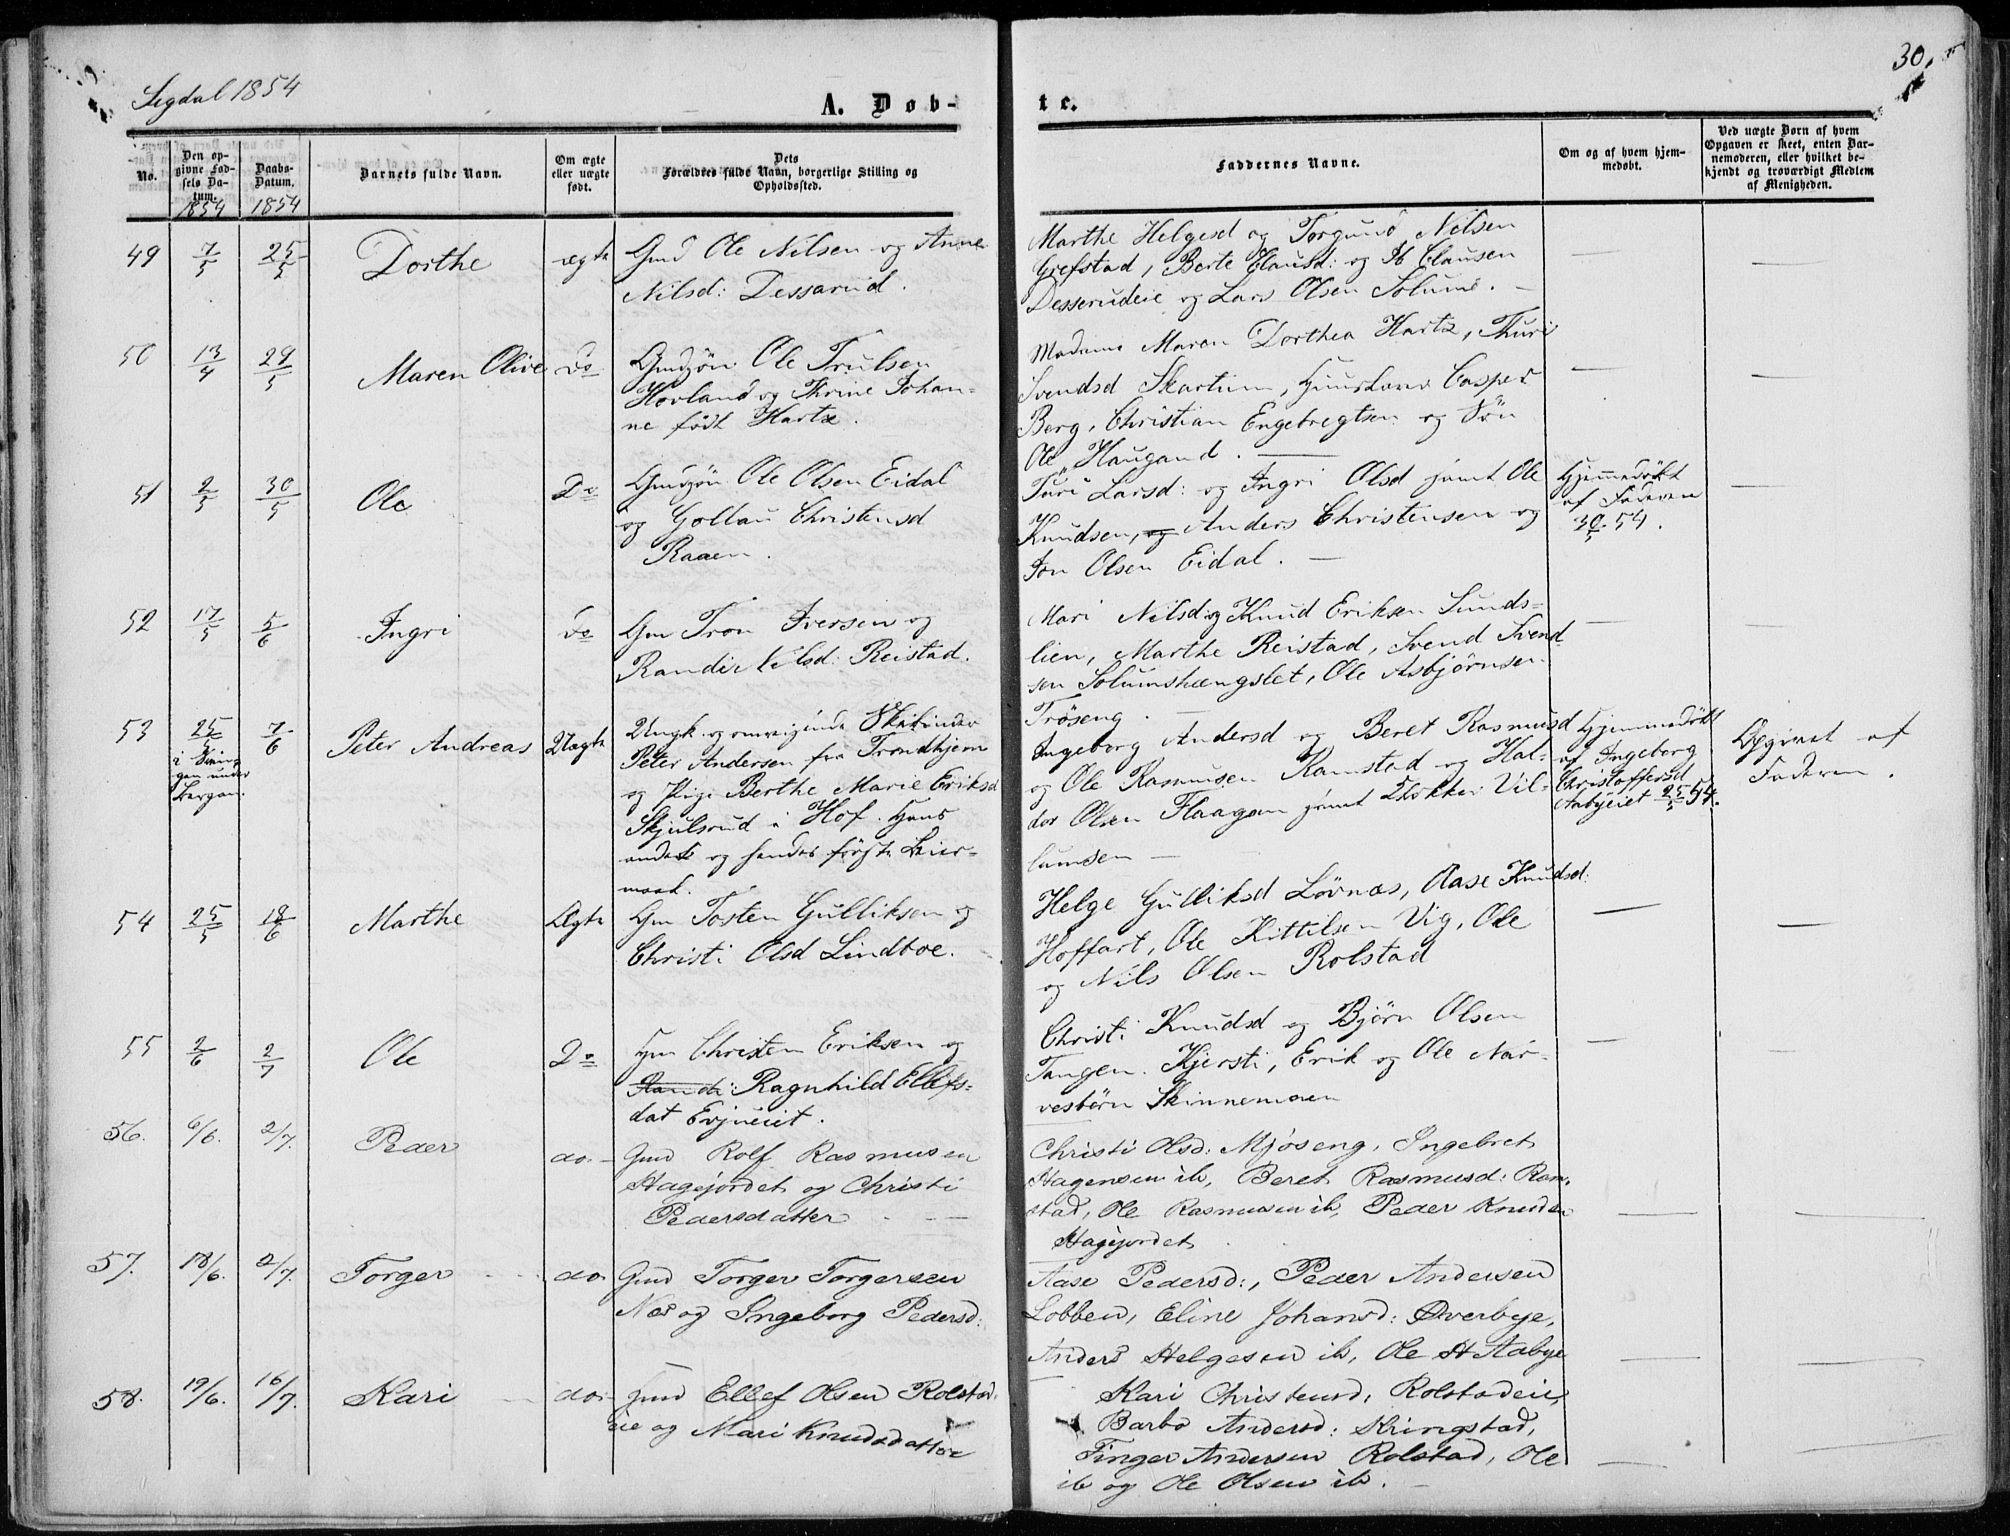 Sigdal 1854
30.
A. Døb-
te.
No.
Den op-
givne Fød-
sels Da-
tum.
1854
Daabs-
Datum.
1854
Barnets fulde Navn.
Om ægte
eller uægte
født.
Dets
Forældres fulde Navn, borgerlige Stilling og
Opholdssted.
Faddernes Navne.
Om og af hvem hjem-
medøbt.
Ved uægte Børn af hvem
Opgaven er skeet, enten Bar-
nemoderen, eller hvilket be-
kjendt og troværdigt Medlem
af Menigheden.
49 7/5 25/5 Dorthe ægte
Gmd Ole Nilsen og Anne
Nilsd: Dessarud.
Marthe Helgesd og Torgund Nilsen
Grefstad, Berte Clausd: og Ib Clausen
Desserudeie og Lars Olsen Solum. —
— —
50 13/4 29/5 Maren Olive do
Gmdzøn Ole Trulsen
Hovland og Thrine Johan-
ne født Hartz.
Madame Maren Dorthea Hartz, Thuri
Svendsd Skartum, Casper
Berg, Christian Engebregtsen og Søn
Ole Haugand. —
— —
51 2/5 30/5 Ole Do
Gmdzøn Ole Olsen Eidal
og Gollau Christensd
Raaen.
Turi Larsd: og Ingri Olsd samt Ole
Knudsen, og Anders Christensen og
Jon Olsen Eidal. —
Hjemmedøbt
af Faderen
30/5 54.
—
52 17/5 5/6 Ingri do
Gm Tron Iversen og
Randi Nilsd: Reistad.
Mari Nilsd og Knud Eriksen Sunds-
lien, Marthe Reistad, Svend Svend
sen Solumshængslet, Ole Asbjørnsen
Trøseng. —
— —
53 25/5 i under Bergan. 7/6 Peter Andreas Uægte
Ungk. og omreigende Skilinder
Peter Andersen fra Trondhjem
og Pige Berthe Marie Eriksd
Skjulsrud i Hof. Hans
andet og hendes første Leier-
maal.
Ingeborg Andersd og Beret Rasmusd
og Ole Rasmusen Ramstad og Hal-
dor Olsen Flaagan samt Vil-
lumsen —
Hjemmedøbt
af Ingeborg
Christoffersd
Aabyeiet 25/5 54.
Opgivet af
Faderen.
54 25/5 18/6 Marthe Ægte
Gm Tosten Gulliksen og
Christi Olsd Lindboe.
Helge Gulliksd Løvnæs, Aase Knudsd:
Hoffart, Ole Kittilsen Vig, Ole
og Nils Olsen Rolstad
— —
55 2/6 2/7 Ole Do
Hm Christen Eriksen og
Randi: Ragnhild Ellefs-
dat Evjueiet.
Christi Knudsd og Bjørn Olsen
Tangen. Kjersti, Erik og Ole Nar-
vesbørn Skinnemoen
— —
56. 6/6. 2/7. Peder do. —
Gmd Rolf Rasmusen
Hagejordet og Christi
Pedersdatter —
Christi Olsd: Mjøseng, Ingebret
Hagensen ib, Beret Rasmusd: Ram-
stad, Ole Rasmusen ib, Peder Knudsen
Hagejordet
— —
57. 18/6. 2/7. Torger do.
Gmd Torger Torgersen
Næs og Ingeborg Pedersd:
Aase Pedersd:, Peder Andersen
Lobben, Eline Johansd: Øverbye,
Anders Helgesen ib, Ole H Aabye
— —
58. 19/6. 16/7. Kari do.
Gmd Ellef Olsen Rolstad-
eie og Mari Knudsdatter
Kari Christensd: Rolstadeie,
Barbo Andersd: Kringstad,
Finger Andersen Rolstad, Ole
ib og Ole Olsen ib. —
—